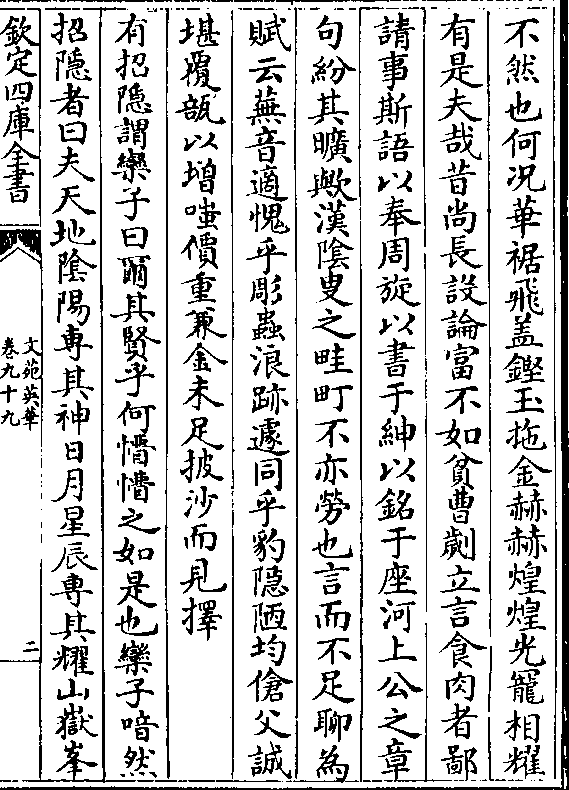 不然也何况華裾飛盖鏗玉拖金赫赫煌煌光寵相耀
有是夫哉昔尚長設論富不如貧曹劌立言食肉者鄙
請事斯語以奉周旋以書于紳以銘于座河上公之章
句紛其曠歟漢陰叟之畦町不亦勞也言而不足聊為
賦云蕪音適愧乎彫蟲浪跡遽同乎豹隱陋均傖父誠
堪覆瓿以增嗤價重兼金未足披沙而見擇
有招隱謂欒子曰爾其賢乎何懵懵之如是也欒子喑然
招隱者曰夫天地陰陽専其神日月星辰専其耀山嶽峯
欽定四庫全書
文苑英華
卷九十九
二